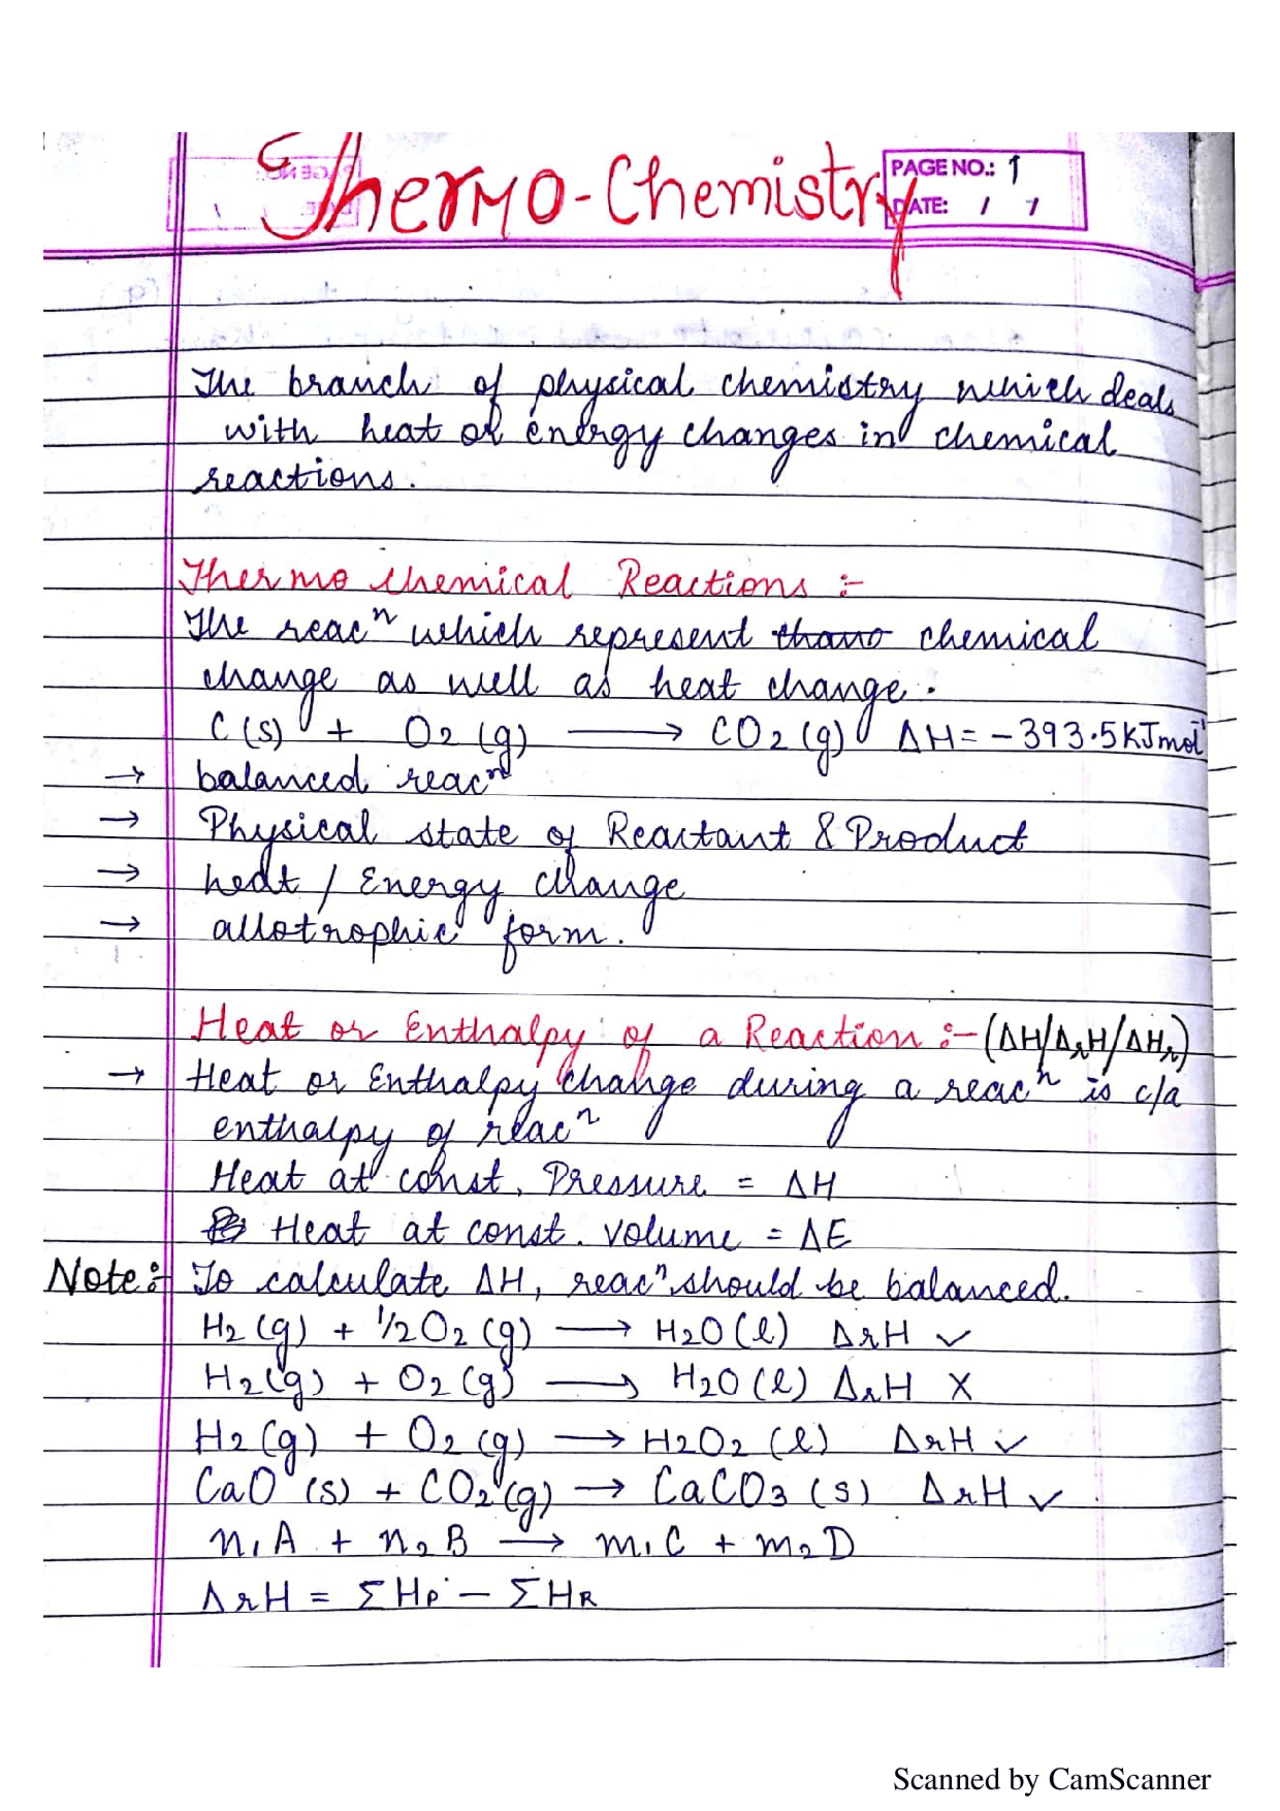 Thermo-Chemistry
PAGE NO.: 1
DATE: / /
The branch of physical chemistry which deals
with heat or energy changes in chemical
reactions.
Thermo chemical Reactions :-
The reacⁿ which represent chemical
change as well as heat change.
C(s) + O2(g) ⟶ CO2(g) ΔH = -393.5 kJ mol⁻¹
→ balanced reacⁿ
→ Physical state of Reactant & Product
→ heat / Energy change
→ allotrophic form.
Heat or Enthalpy of a Reaction :- (ΔH/ΔrH/ΔHr)
→ Heat or Enthalpy change during a reacⁿ is c/a
enthalpy of reacⁿ
Heat at const. Pressure = ΔH
Heat at const. volume = ΔE
Note :- To calculate ΔH, reacⁿ should be balanced.
H2(g) + 1/2 O2(g) ⟶ H2O(l) ΔrH ✓
H2(g) + O2(g) ⟶ H2O(l) ΔrH X
H2(g) + O2(g) ⟶ H2O2(l) ΔrH ✓
CaO(s) + CO2(g) → CaCO3(s) ΔrH ✓
n1A + n2B ⟶ m1C + m2D
ΔrH = ΣHP - ΣHR
Scanned by CamScanner